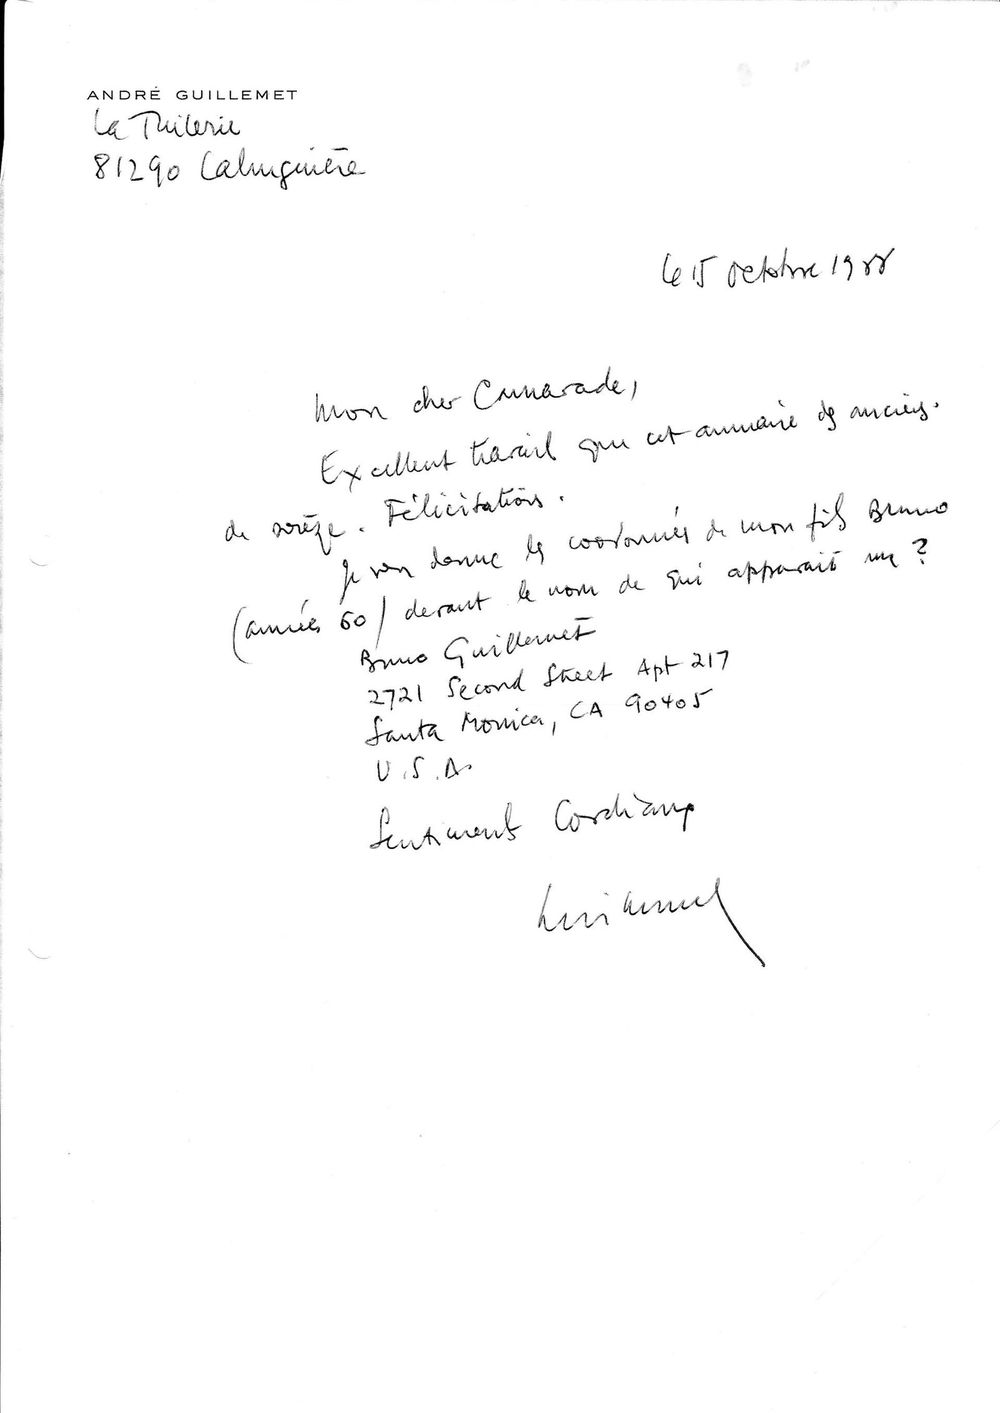 ANDRÉ GUILLEMET
La Thilerie
81290 Labruguière
le 15 octobre 1988
Mon cher Camarade,
Excellent travail que cet annuaire des anciens
de sorèze. Félicitations.
Je vous donne les coordonnées de mon fils Bruno
(années 60) devant le nom de qui apparait un ?
Bruno Guillemet
2721 Second Street Apt 217
Santa Monica, CA 90405
U.S.A.
Sentiments Cordiaux
Guillemet